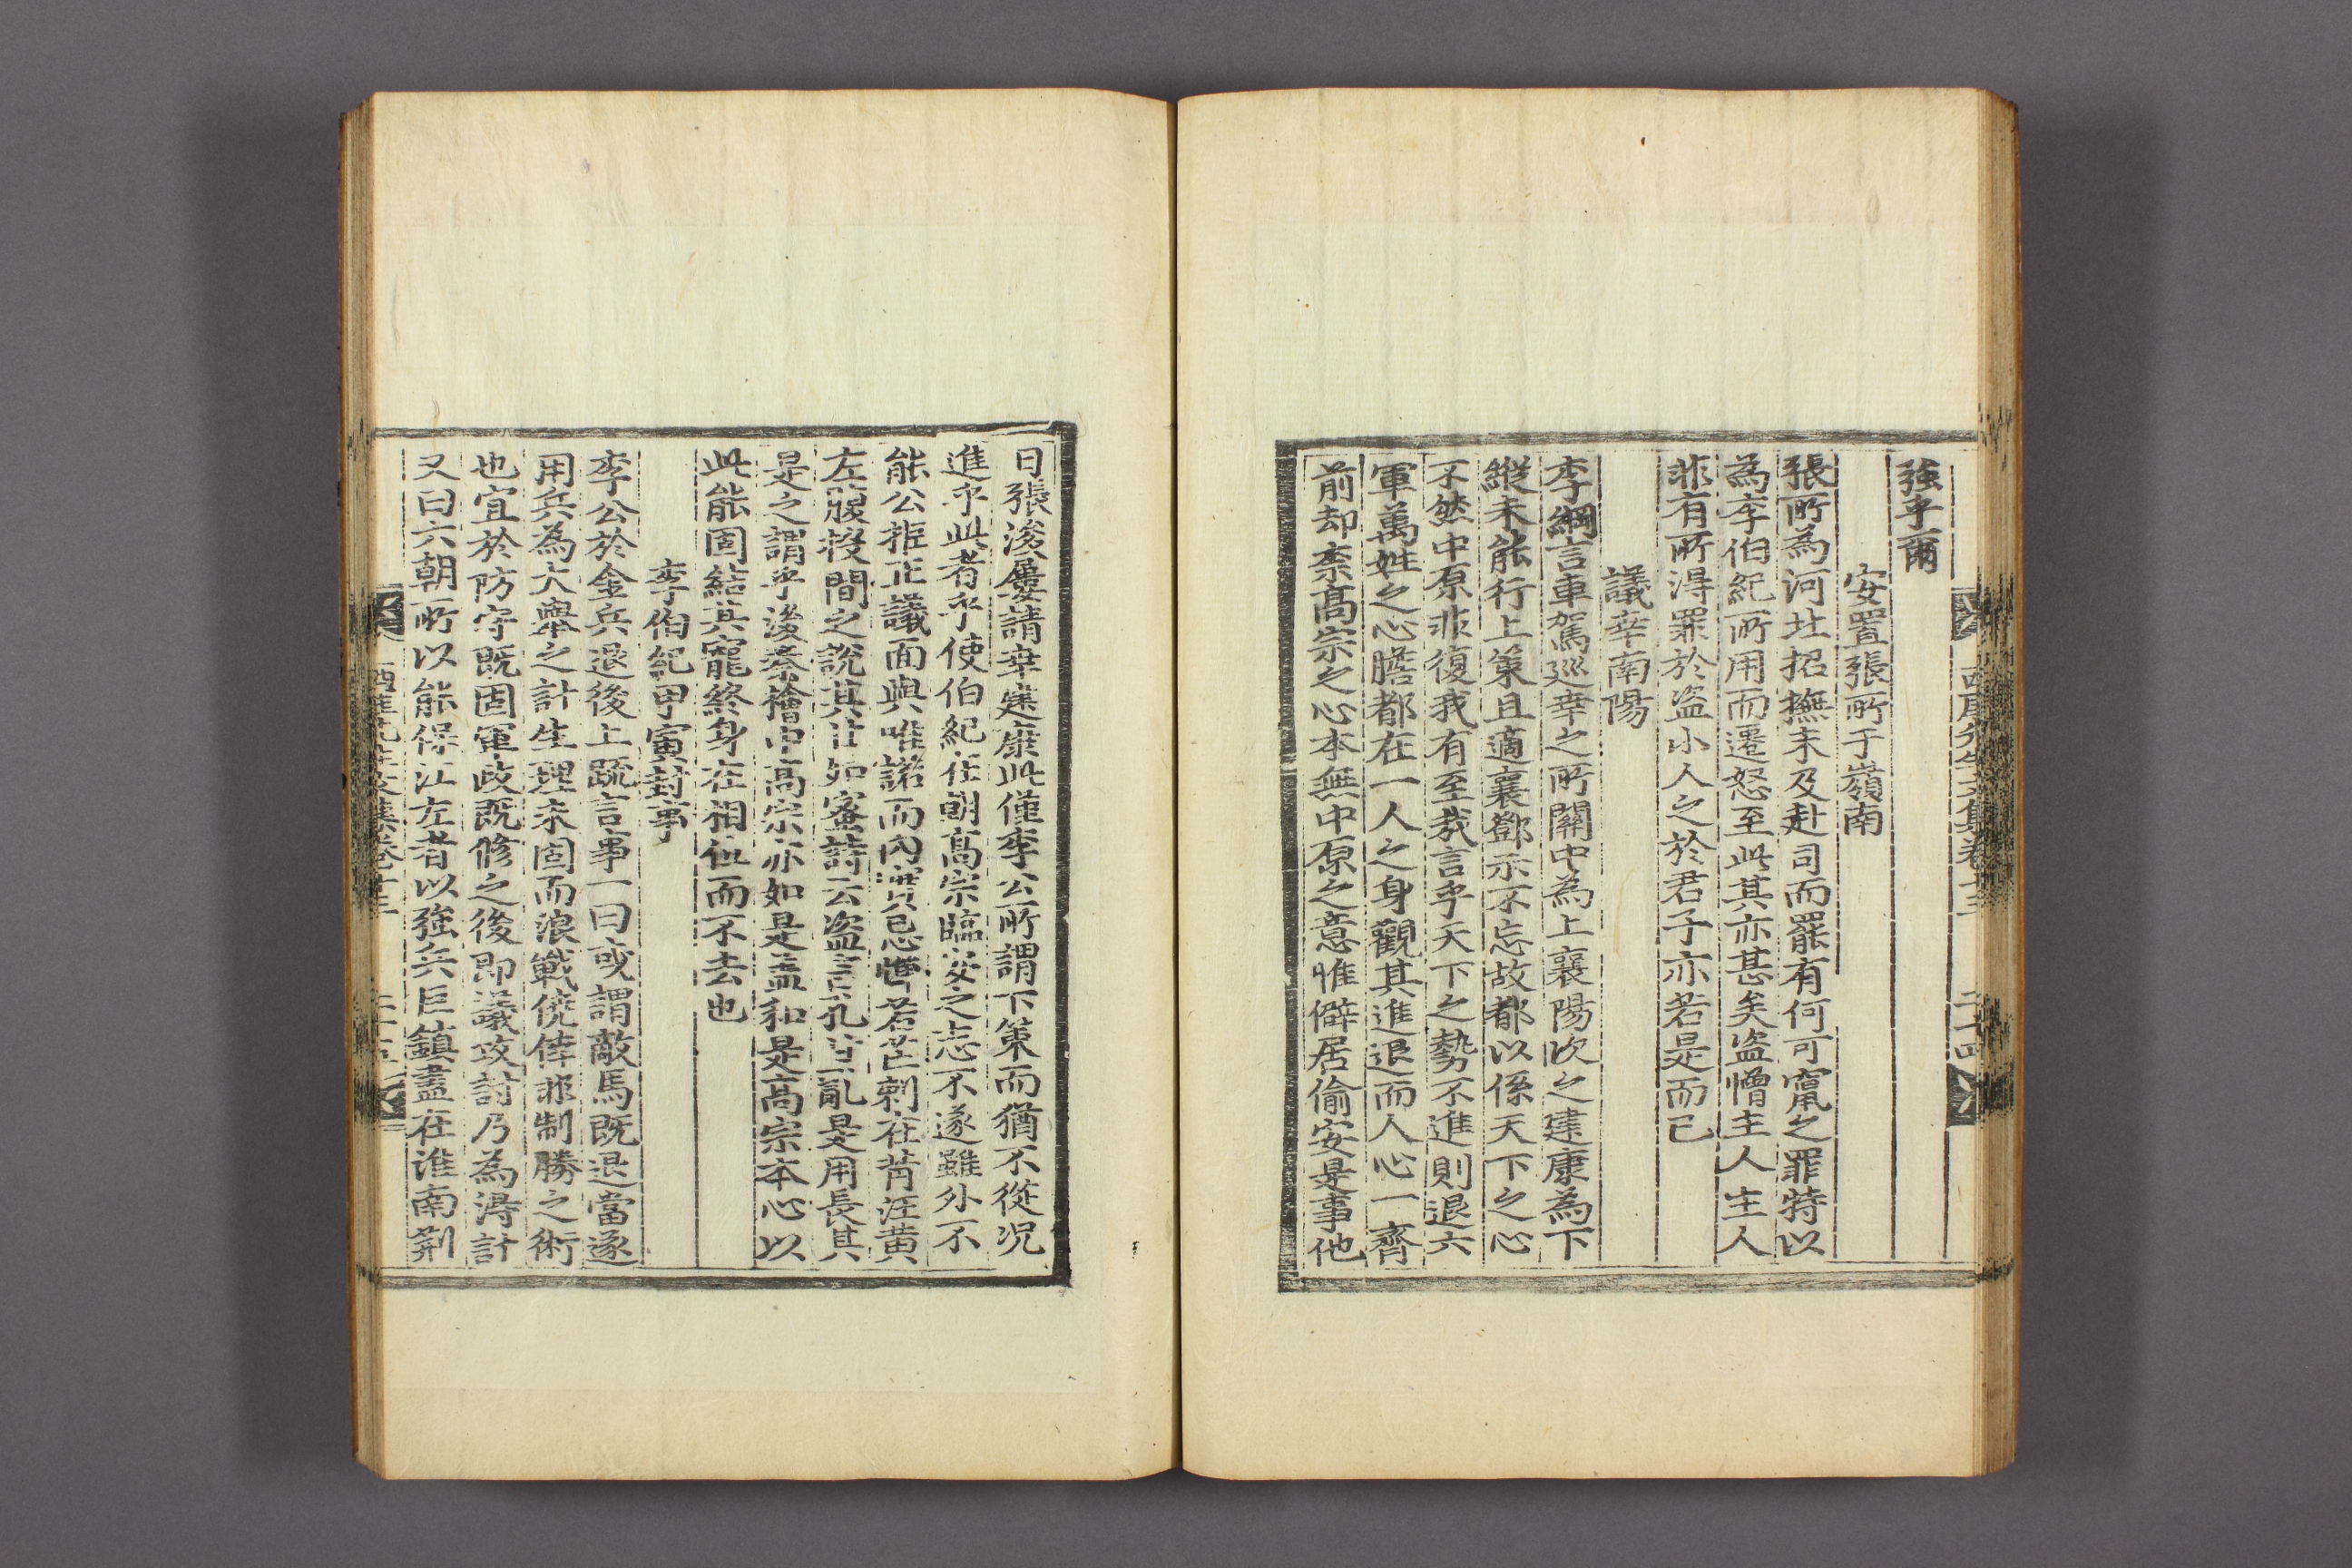 強乎爾
安置張所于嶺南
張所為河北招撫未及赴司而罷有何可竄之罪特以
為李伯紀所用而遷怒至此其亦甚矣盜憎主人主人
非有所得罪於盜小人之於君子亦若是而已
議幸南陽
李綱言車駕巡幸之所關中為上襄陽次之建康為下
縱未能行上策且適襄鄧示不忘故都以係天下之心
不然中原非復我有至哉言乎天下之勢不進則退六
軍萬姓之心膽都在一人之身觀其進退而人心一齊
前却柰高宗之心本無中原之意惟僻居偷安是事他
日張浚屢請幸建康此僅李公所謂下策而猶不從况
進乎此者乎使伯紀在朝高宗臨安之志不遂雖外不
能公拒正議面與唯諾而內實忌憚若芒刺在背汪黃
左腹投間之說其甘如蜜詩云盜言孔甘亂是用長其
是之謂乎後秦檜中高宗亦如是盖和是高宗本心以
此能固結其寵終身在相位而不去也
李伯紀甲寅封事
李公於金兵退後上疏言事一曰或謂敵馬既退當遂
用兵為大舉之計生理未固而浪戰僥倖非制勝之術
也宜於防守既固軍政既修之後即議攻討乃為得計
又曰六朝所以能保江左者以強兵巨鎮盡在淮南荆
西厓先生文集卷十三 二十五